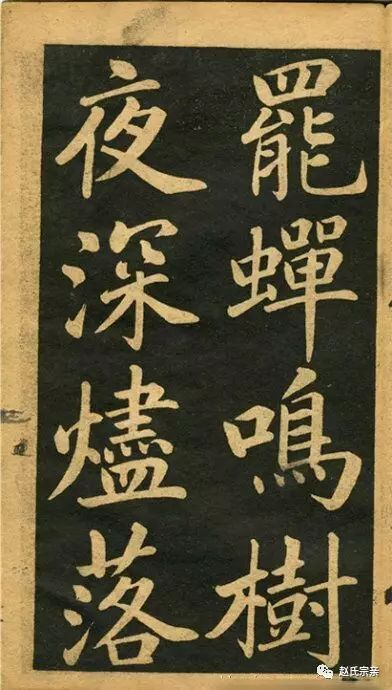 罷蟬鳴樹
夜深燼落
赵氏宗亲